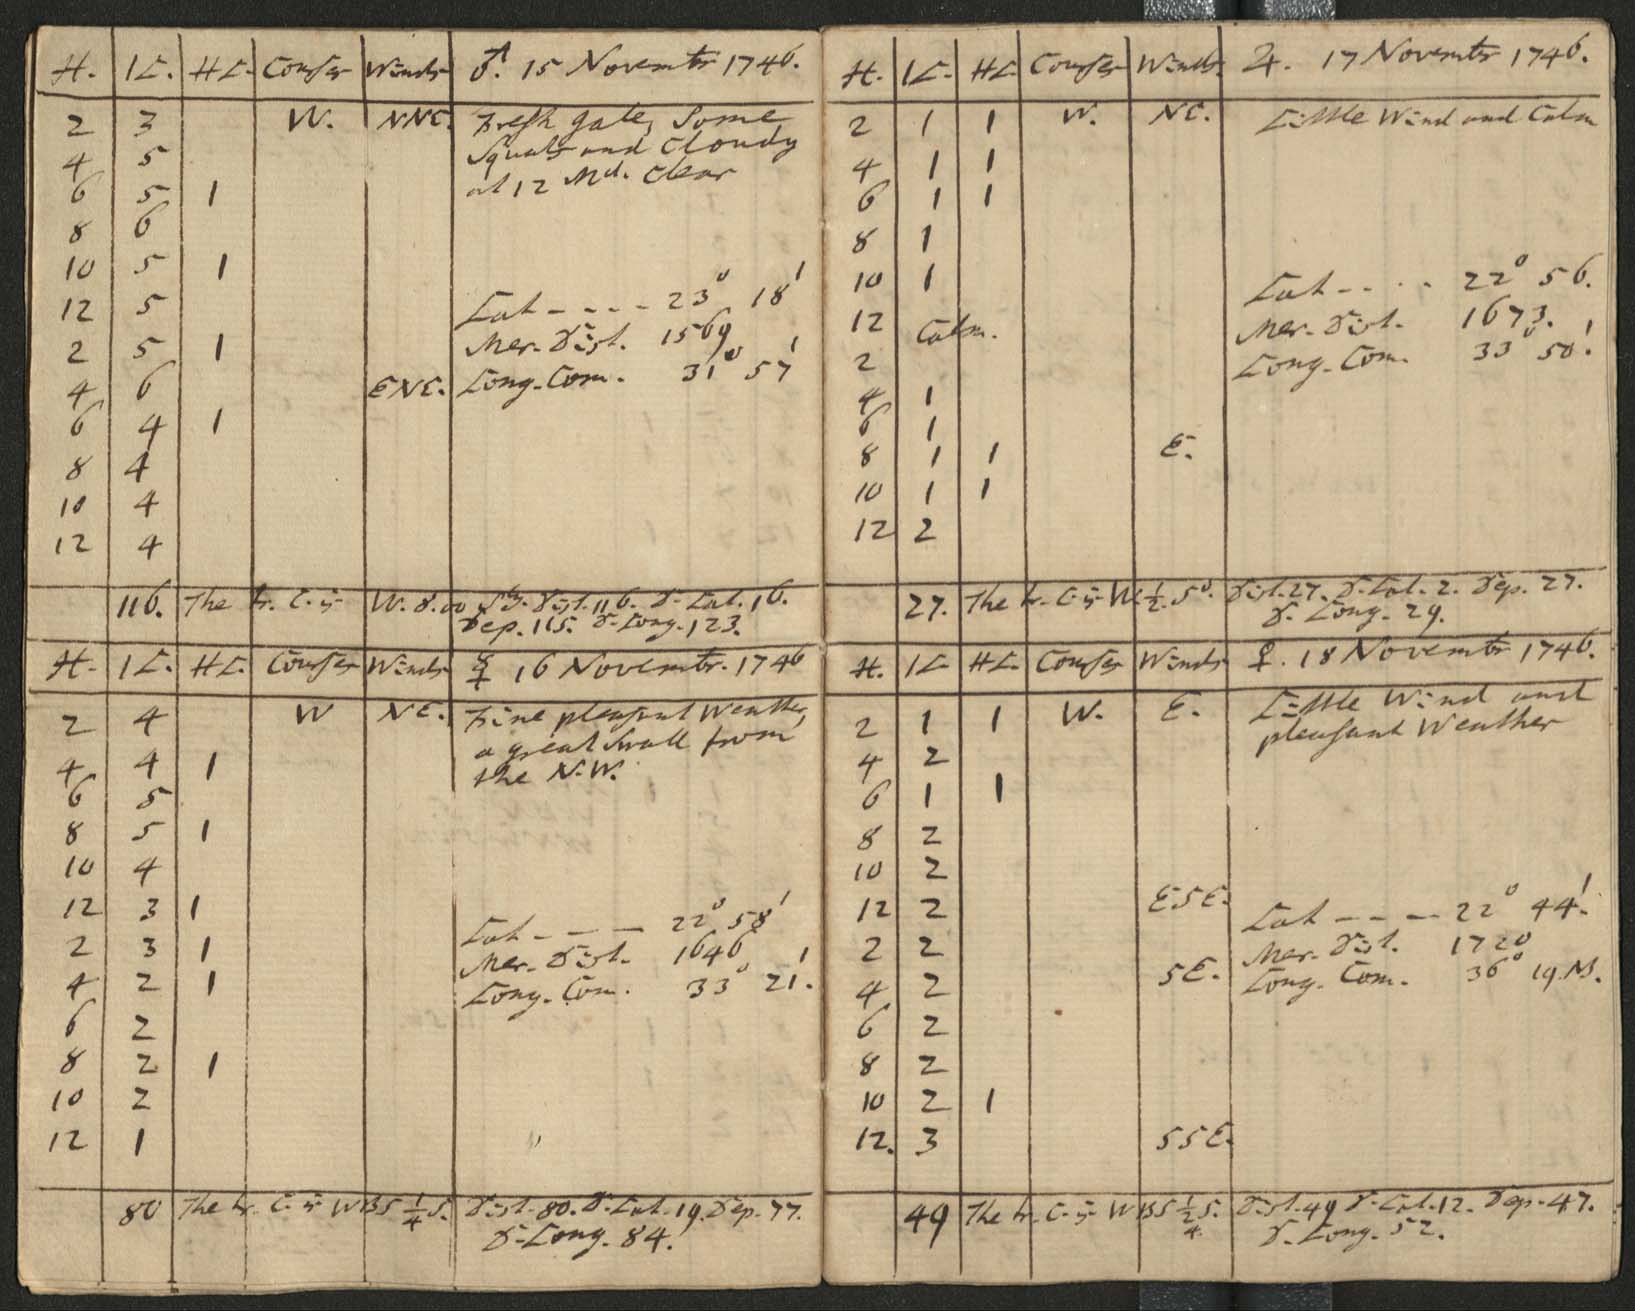 H. 1K. HK. Courses Winds ♂. 15 Novembr 1746.
2 3 W. NNE. Fresh gale, Some
Squals and Cloudy
4 5
at 12 Md. Clear
6 5 1
8 6
10 5 1
12 5 Lat - - - - 23° 18'
2 5 1 Mer. Dist. 1569
4 6 ENE. Long. Com. 31° 57'
6 4 1
8 4
10 4
12 4
116. The tr. C. is W. 8.00 Sly. Dist. 116. D. Lat. 16.
Dep. 115. D. Long. 123.
H. 1K. HK. Courses Winds ☿ 16 Novembr. 1746
2 4 W NE. Fine pleasant Weather,
a great Swall from
4 4 1 the N.W.
6 5
8 5 1
10 4
12 3 1 Lat - - - 22° 58'
2 3 1 Mer. Dist. 1646
4 2 1 Long. Com. 33° 21'.
6 2
8 2 1
10 2
12 1
80 The tr. C. is WBS 1/4 S. Dist. 80. D. Lat. 19. Dep. 77.
D. Long. 84.
H. 1K. HK. Courses Winds. ♃. 17 Novembr 1746.
2 1 1 W. NE. Little Wind and Calm
4 1 1
6 1 1
8 1
10 1 Lat - - - - 22° 56.
12 Calm. Mer. Dist. 1673.
2 Long. Com. 33° 50'.
4 1
6 1
8 1 1 E.
10 1 1
12 2
27. The tr. C. is W. 1/2. S°. Dist. 27. D. Lat. 2. Dep. 27.
D. Long. 29.
H. 1K HK. Courses Winds ♀. 18 Novembr 1746.
2 1 1 W. E. Little Wind and
pleasant Weather
4 2
6 1 1
8 2
10 2
12 2 ESE. Lat - - - 22° 44'.
2 2 Mer. Dist. 1720
4 2 SE. Long. Com. 36° 19. M.
6 2
8 2
10 2 1
12. 3 SSE.
49 The tr. C. is WBS 1/2 S. Dist. 49 D. Lat. 12. Dep. 47.
4. D. Long. 52.